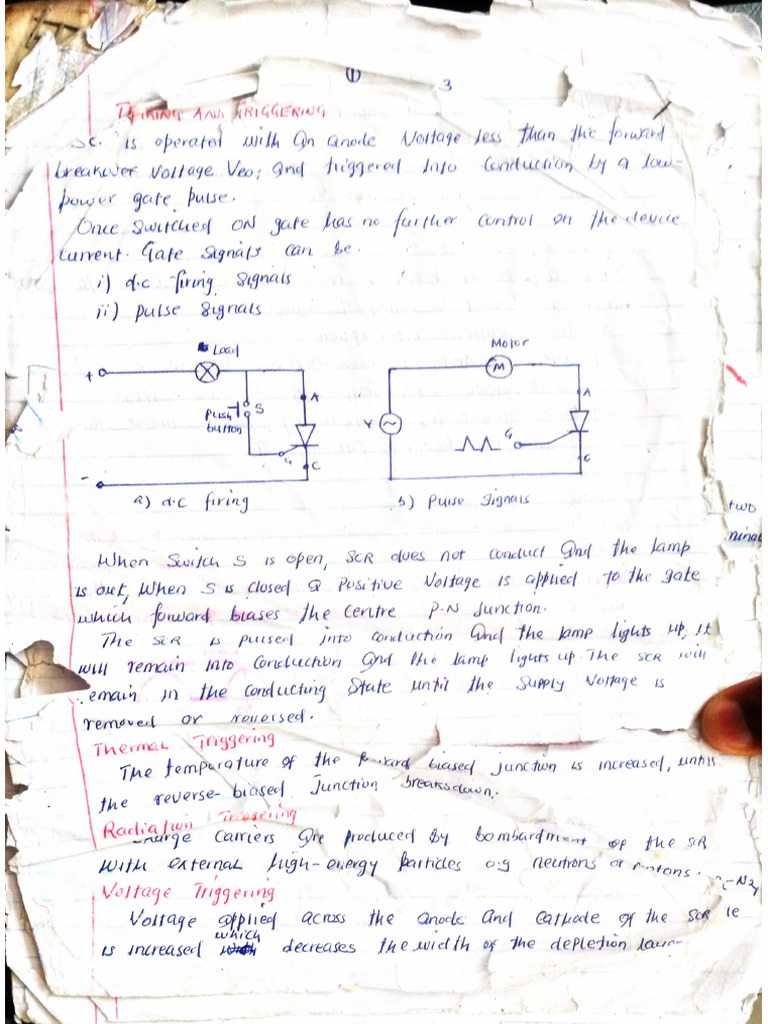 (1)
3
FIRING AND TRIGGERING
is operated with an anode Voltage less than the forward
breakover Voltage VBO; and triggered into conduction by a low-
power gate pulse.
Once Switched ON gate has no further control on the device
current. Gate signals can be.
i) d.c firing signals
ii) pulse signals
Load
Motor
+
A
S
Push
button
G
C
-
M
A
V
G
C
a) d.c firing
b) Pulse Signals
two
When Switch S is open, SCR does not conduct and the lamp
is out, When S is closed a positive Voltage is applied to the gate
which forward biases the centre P-N Junction.
The SCR is pulsed into conduction and the lamp lights up. It
will remain into conduction and the lamp lights up. The SCR will
emain in the conducting state until the supply Voltage is
removed or reversed.
Thermal Triggering
The temparature of the forward biased junction is increased, until
the reverse-biased Junction breaksdown.
Radiation Triggering
charge carriers are produced by bombardment of the SCR
with external high-energy particles e.g neutrons or protons.
Voltage Triggering
Voltage applied across the anode and cathode of the SCR ie
is increased which decreases the width of the depletion